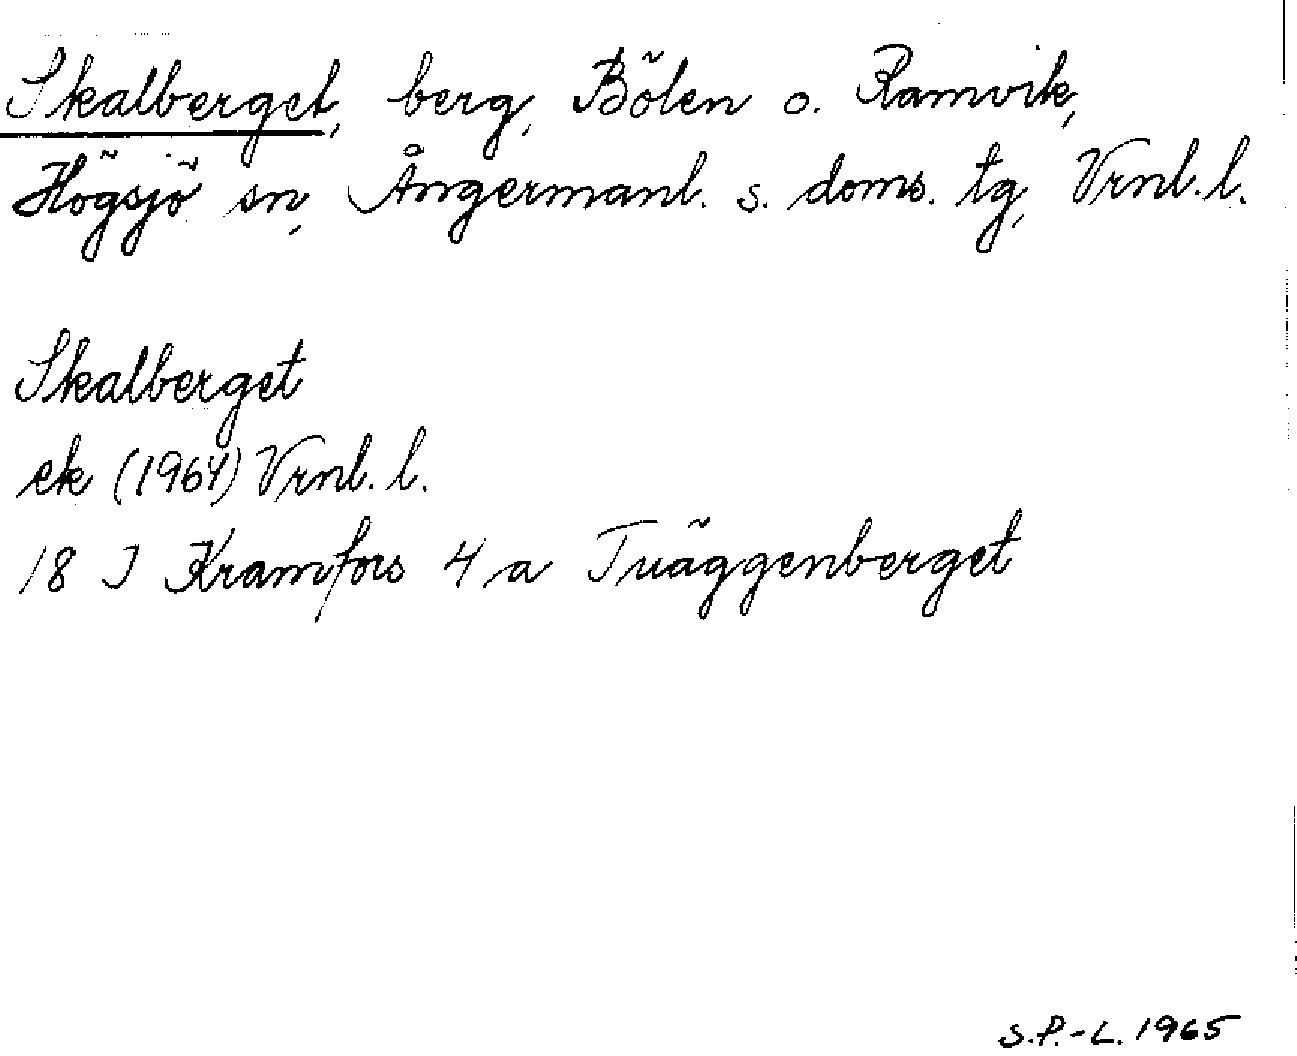 Skalberget, berg, Bölen o. Ramvik,
Högsjö sn, Ångermanl. s. doms. tg, Vrnl. l.
Skalberget
ek (1964) Vrnl. l.
18 J Kramfors 4 a Tväggenberget
S.P.-L. 1965